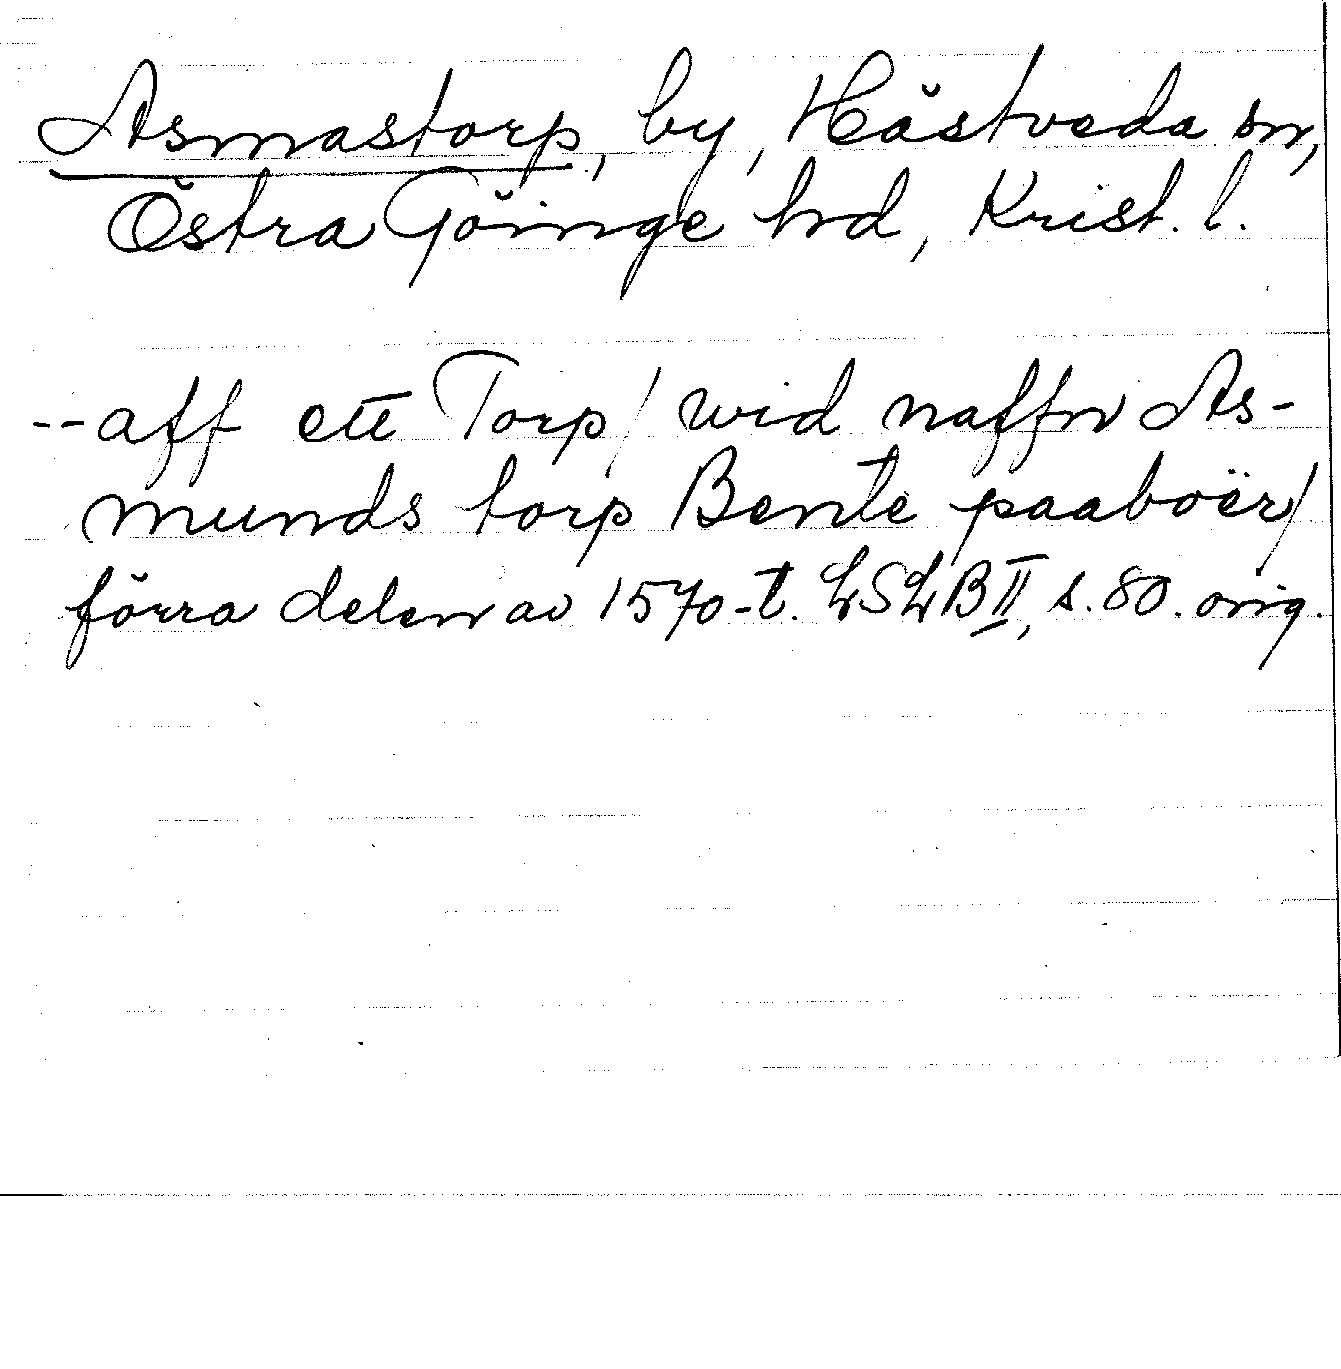 Asmastorp, by, Hästveda sn,
Östra Göinge hd, Krist. l.
--aff ett Torp/ wid naffn As-
munds torp Bente paaboër/
förra delen av 1570-t. LSLB II, s. 80. orig.